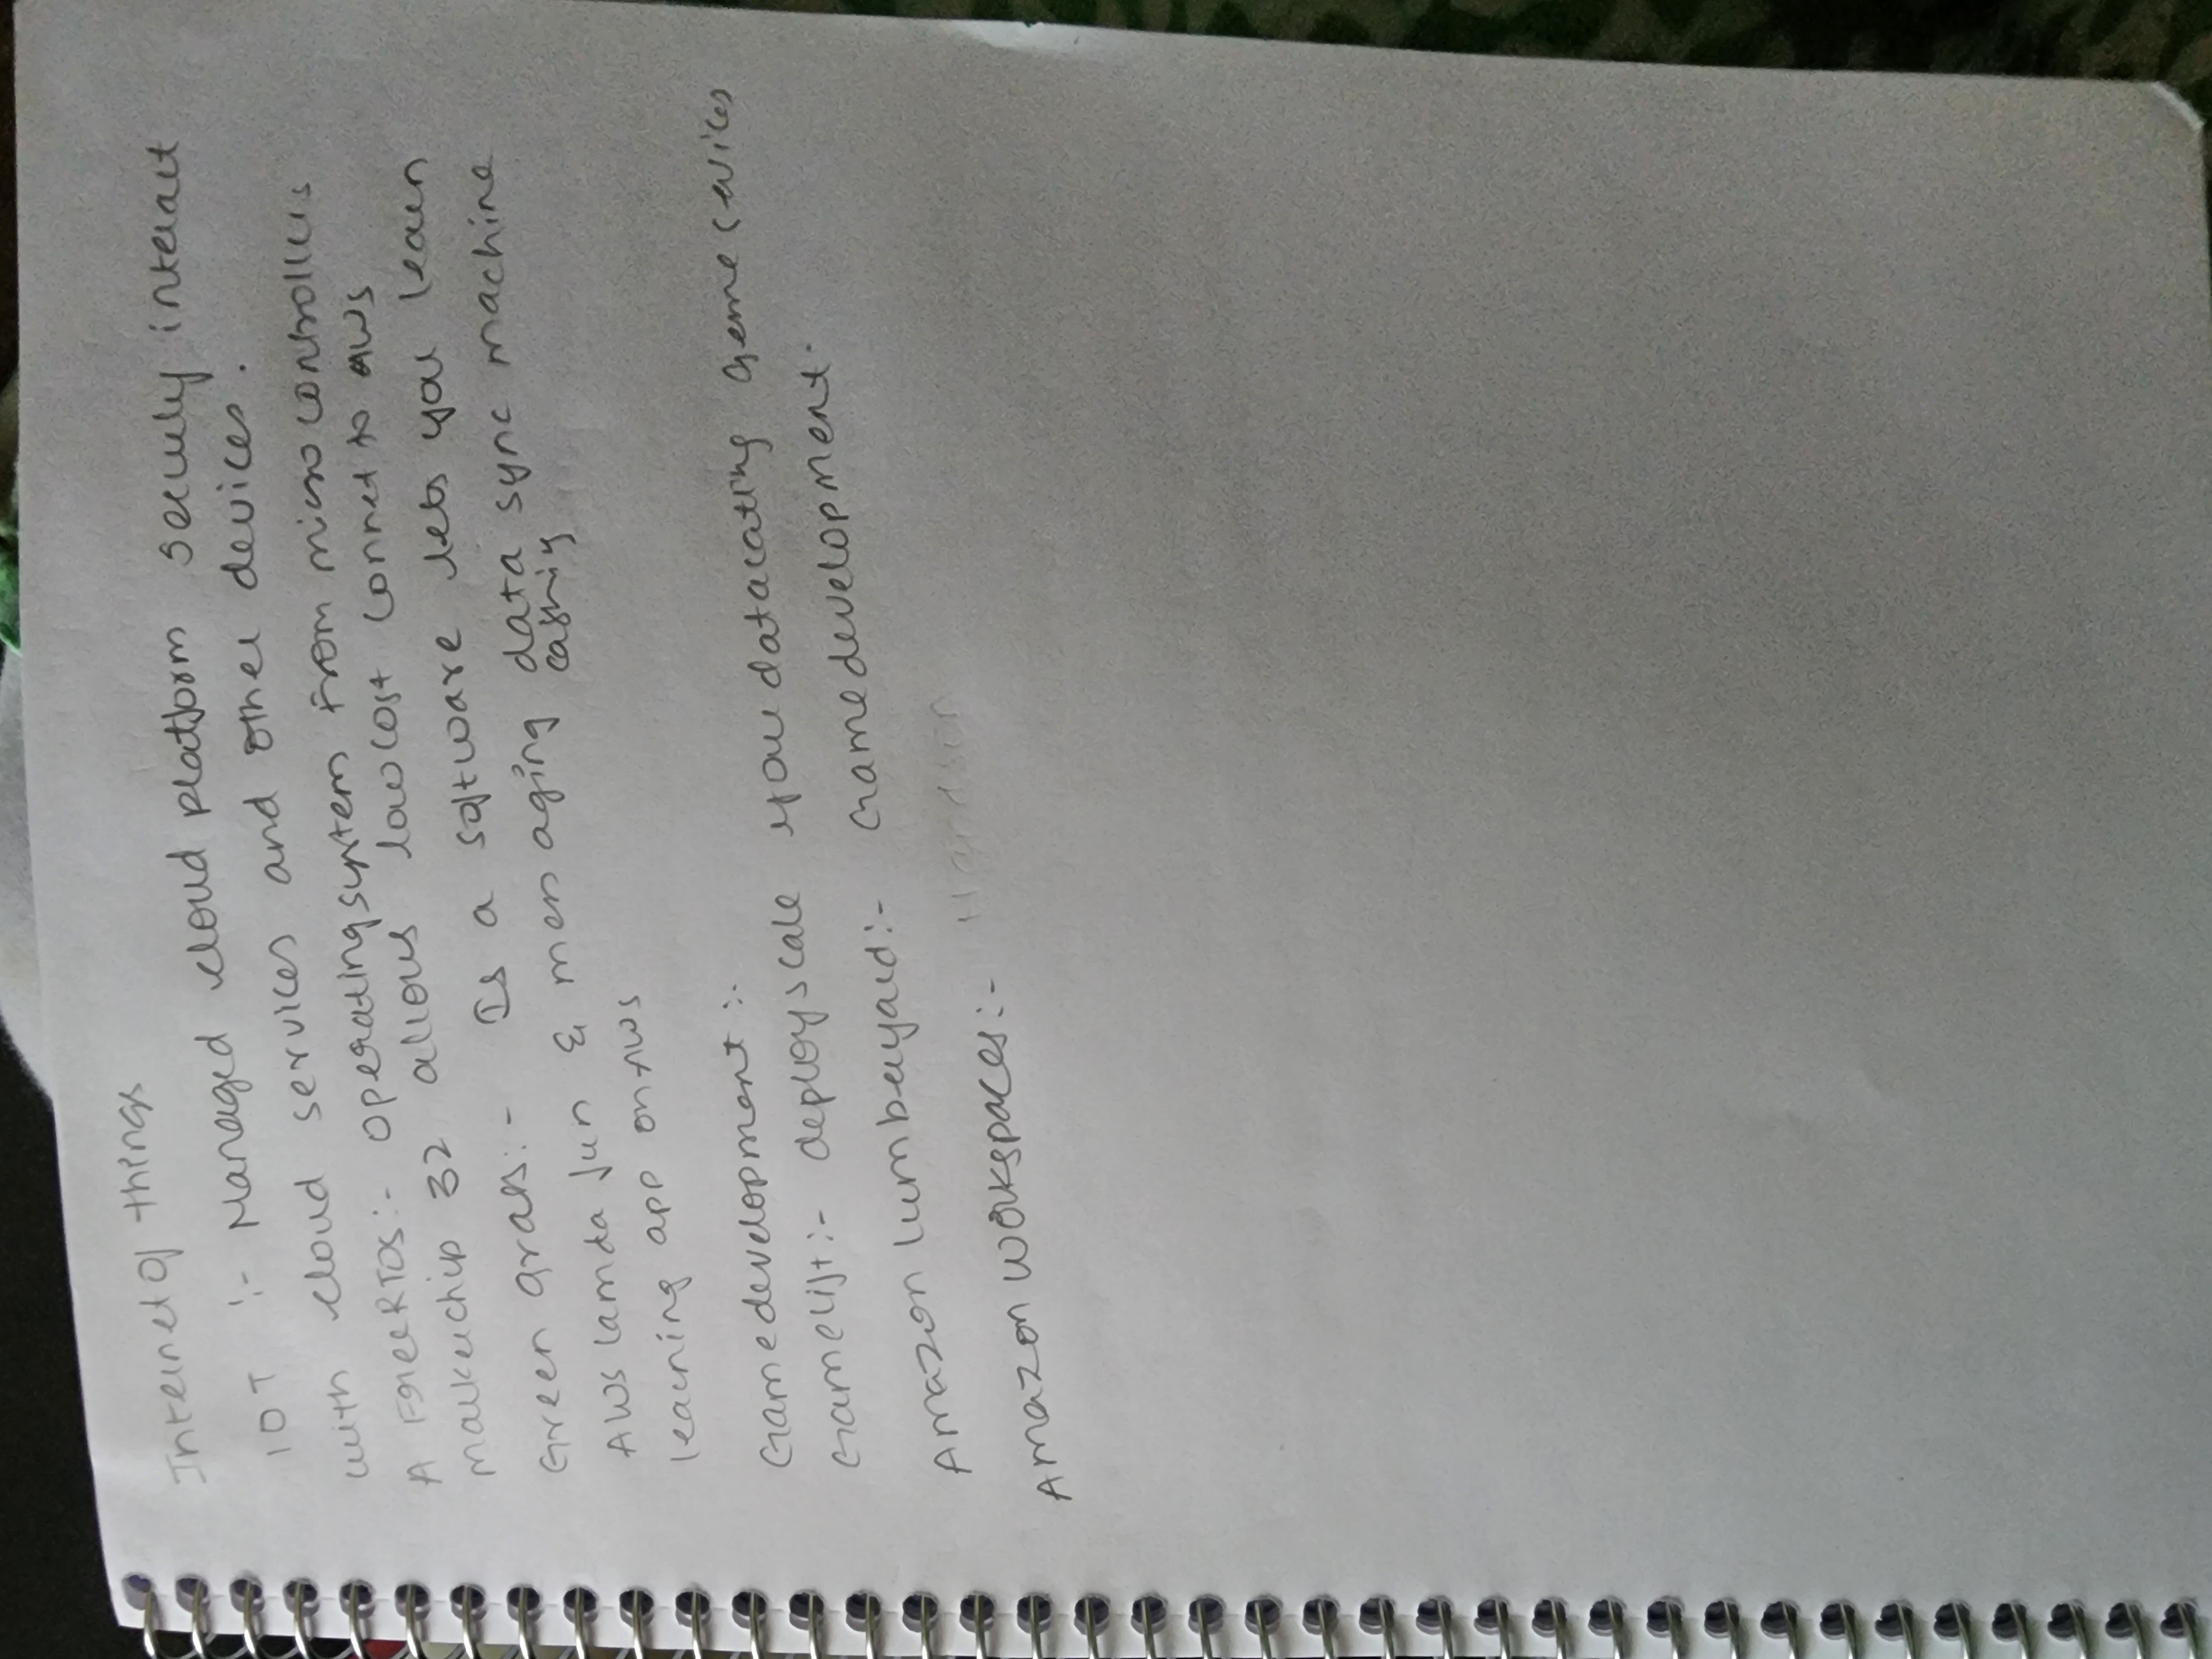 Internet of things
IOT :- Managed cloud platform securely interact
with cloud services and other devices.
A FreeRTOS:- operating system From micro controllers
maikerchip 32 allows low cost connet to AWS
Green grass:- Is a software lets you learn
AWS lamda fun & messaging data sync machine
cashing
learning app on AWS
Gamedevelopment :-
Gamelift:- deploy scale your datacatting Geme services
Amazon lumberyard:- Gamedevelopment.
Amazon workspaces:-